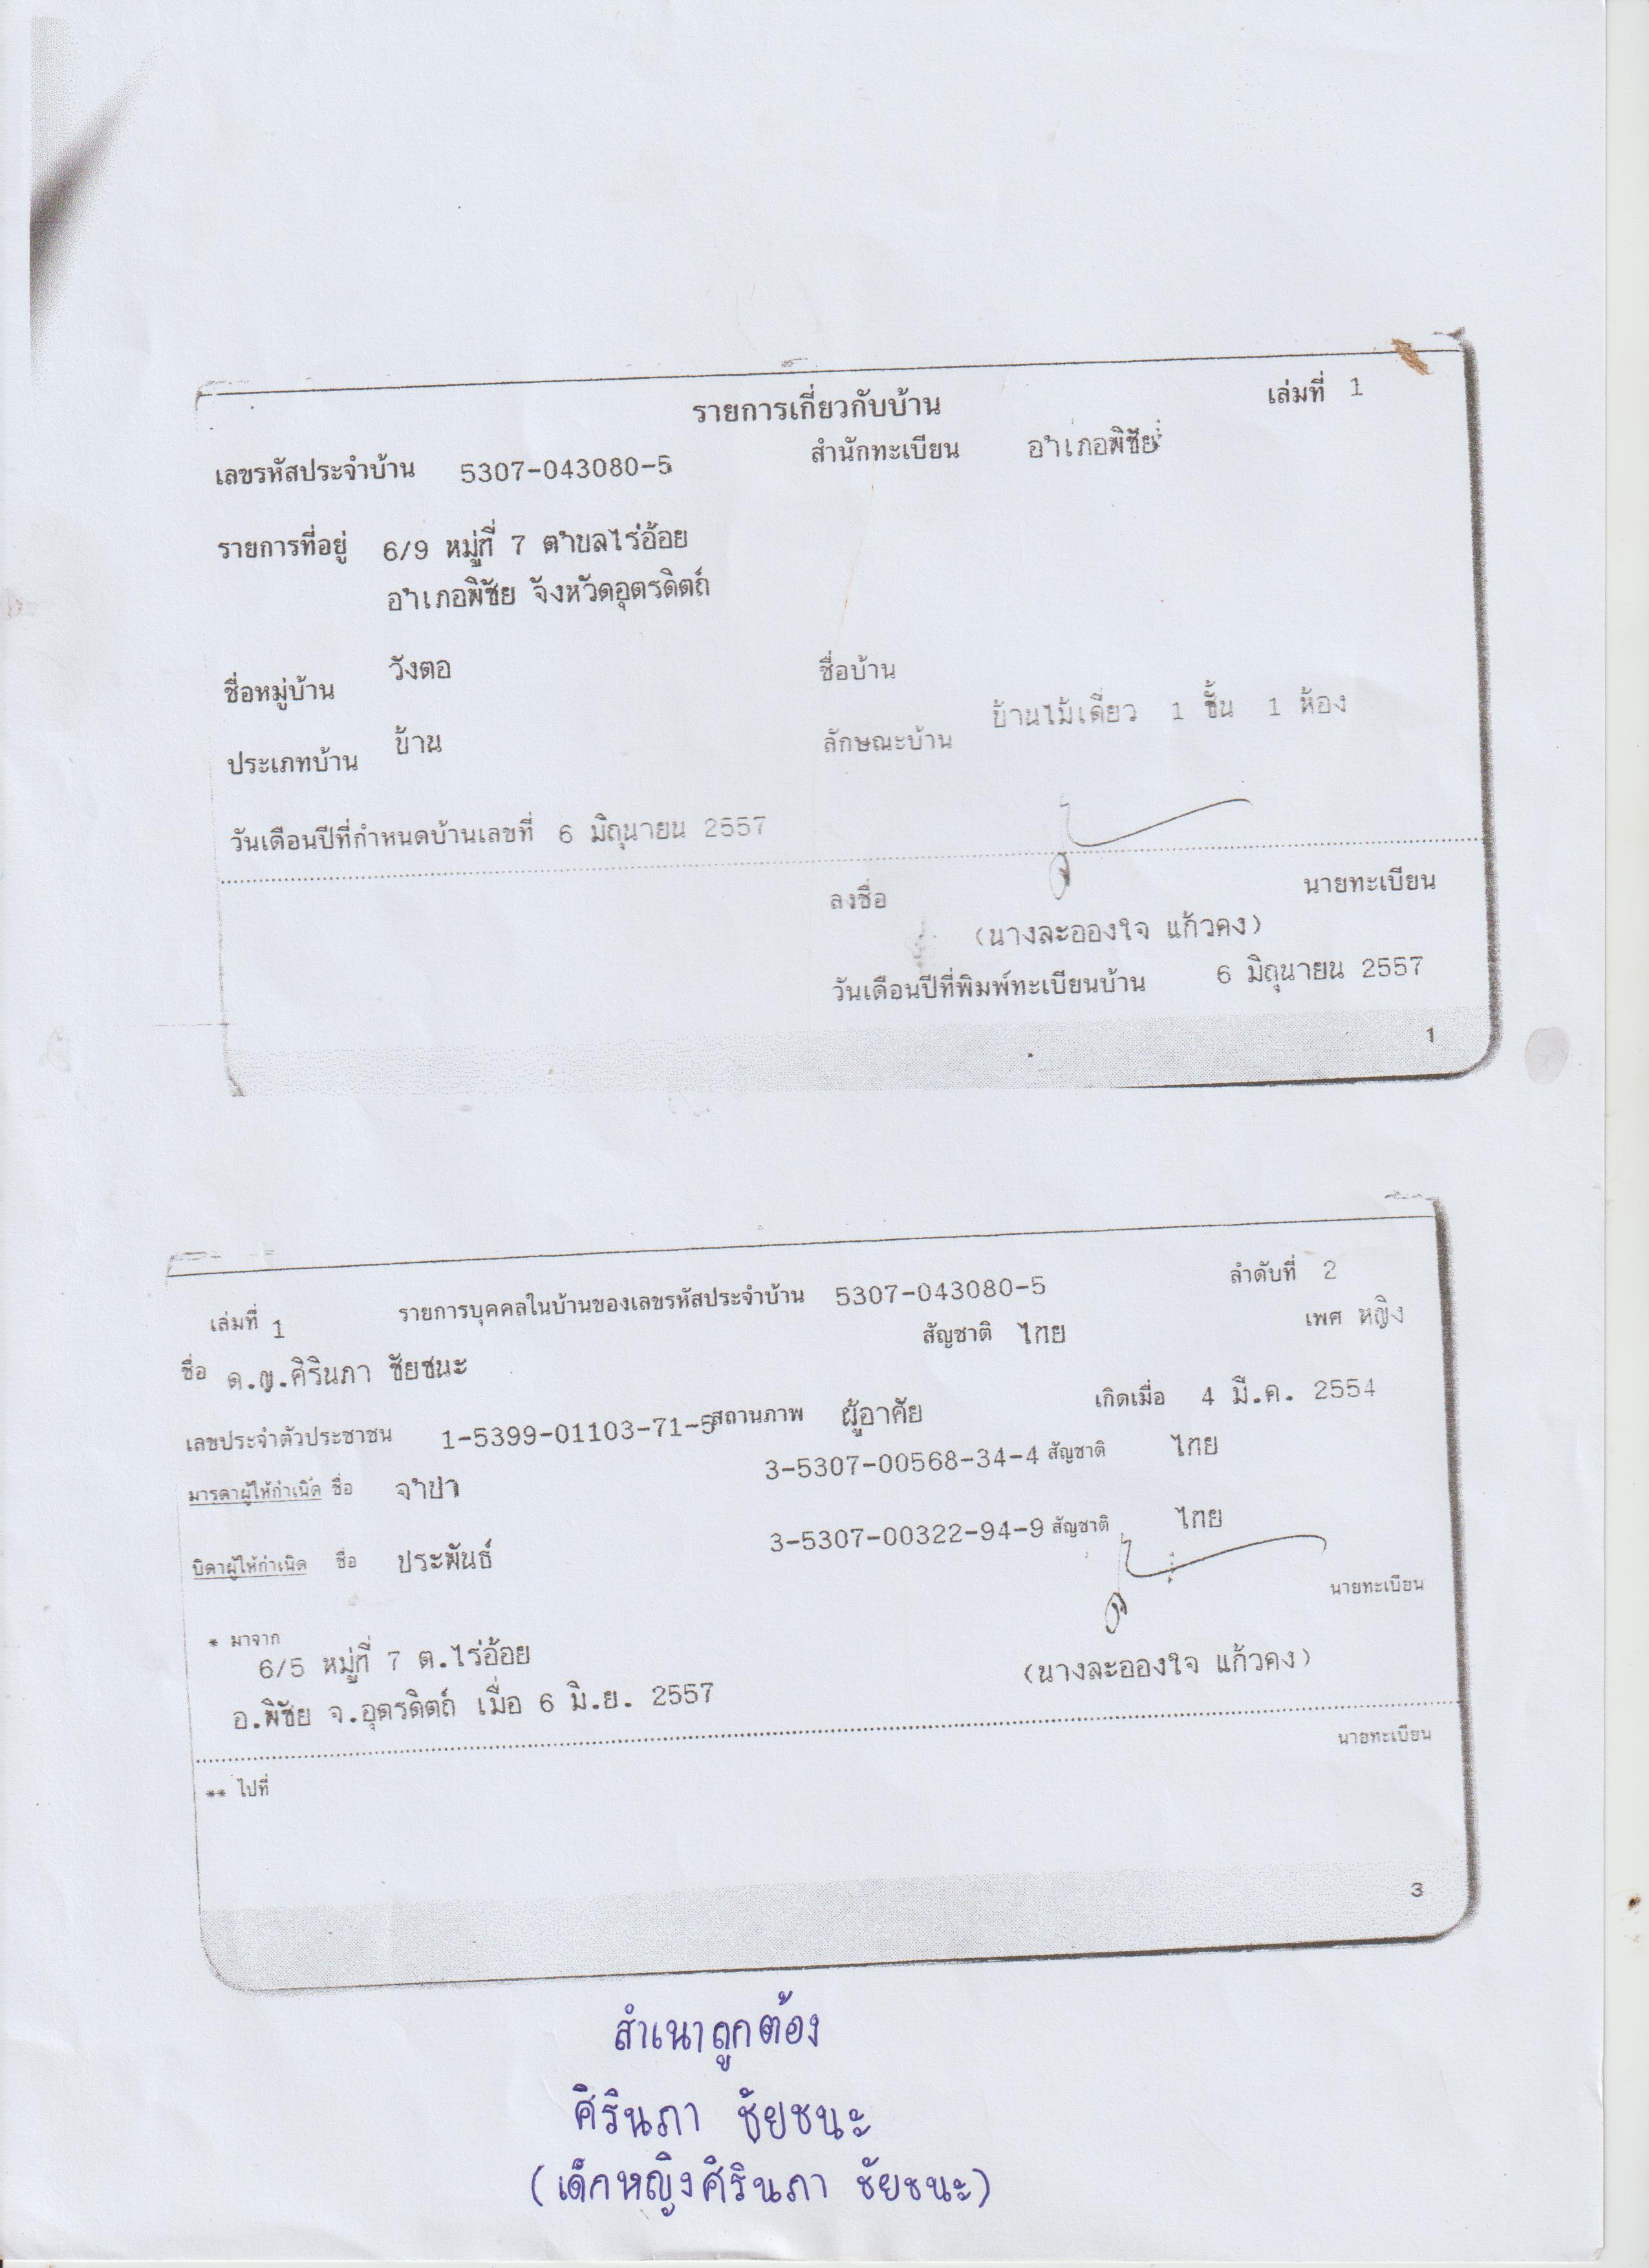 รายการเกี่ยวกับบ้าน เล่มที่ 1
เลขรหัสประจำบ้าน 5307-043080-5 สำนักทะเบียน อำเภอพิชัย
รายการที่อยู่ 6/9 หมู่ที่ 7 ตำบลไร่อ้อย
อำเภอพิชัย จังหวัดอุตรดิตถ์
ชื่อหมู่บ้าน วังตอ ชื่อบ้าน
ประเภทบ้าน บ้าน ลักษณะบ้าน บ้านไม้เดี่ยว 1 ชั้น 1 ห้อง
วันเดือนปีที่กำหนดบ้านเลขที่ 6 มิถุนายน 2557
ลงชื่อ นายทะเบียน
(นางละอองใจ แก้วคง)
วันเดือนปีที่พิมพ์ทะเบียนบ้าน 6 มิถุนายน 2557
1
เล่มที่ 1 รายการบุคคลในบ้านของเลขรหัสประจำบ้าน 5307-043080-5 ลำดับที่ 2
ชื่อ ด.ญ.ศิรินภา ชัยชนะ สัญชาติ ไทย เพศ หญิง
เลขประจำตัวประชาชน 1-5399-01103-71-5 สถานภาพ ผู้อาศัย เกิดเมื่อ 4 มี.ค. 2554
มารดาผู้ให้กำเนิด ชื่อ จำปา 3-5307-00568-34-4 สัญชาติ ไทย
บิดาผู้ให้กำเนิด ชื่อ ประพันธ์ 3-5307-00322-94-9 สัญชาติ ไทย
นายทะเบียน
* มาจาก
6/5 หมู่ที่ 7 ต.ไร่อ้อย
(นางละอองใจ แก้วคง)
อ.พิชัย จ.อุตรดิตถ์ เมื่อ 6 มิ.ย. 2557
นายทะเบียน
** ไปที่
3
สำเนาถูกต้อง
ศิรินภา ชัยชนะ
(เด็กหญิงศิรินภา ชัยชนะ)